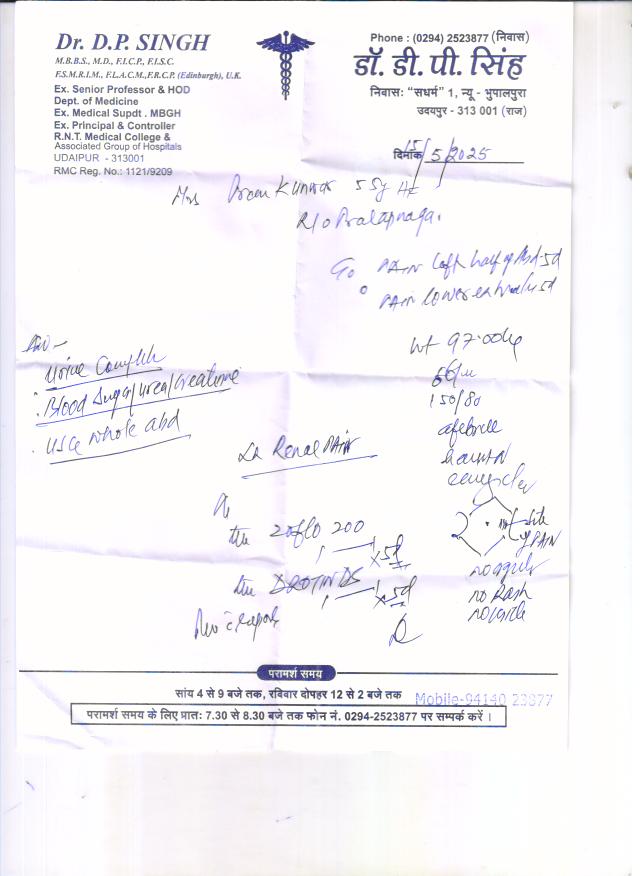 Dr. D.P. SINGH
M.B.B.S., M.D., F.I.C.P., F.I.S.C.
F.S.M.R.I.M., F.L.A.C.M.,F.R.C.P. (Edinburgh), U.K.
Ex. Senior Professor & HOD
Dept. of Medicine
Ex. Medical Supdt . MBGH
Ex. Principal & Controller
R.N.T. Medical College &
Associated Group of Hospitals
UDAIPUR - 313001
RMC Reg. No.: 1121/9209
Phone : (0294) 2523877 (निवास)
डॉ. डी. पी. सिंह
निवासः "सधर्म" 1, न्यू - भुपालपुरा
उदयपुर - 313 001 (राज)
दिनांक 15/5/2025
Mrs Kunwar 55y
R/o Pratapnagar
C/o PAIN left half of Abd - 5d
PAIN lower 5d
Inv -
Urine Complete
Blood Sugar/urea/creatinine
USG whole abd
Wt 97.00kg
150/80
afebrile
La Renal PAIN
site
of PAIN
200
x 5d
DROTIN DS
x 5d
no Rash
Rev c report
परामर्श समय
सांय 4 से 9 बजे तक, रविवार दोपहर 12 से 2 बजे तक
Mobile-94140 23877
परामर्श समय के लिए प्रातः 7.30 से 8.30 बजे तक फोन नं. 0294-2523877 पर सम्पर्क करें ।